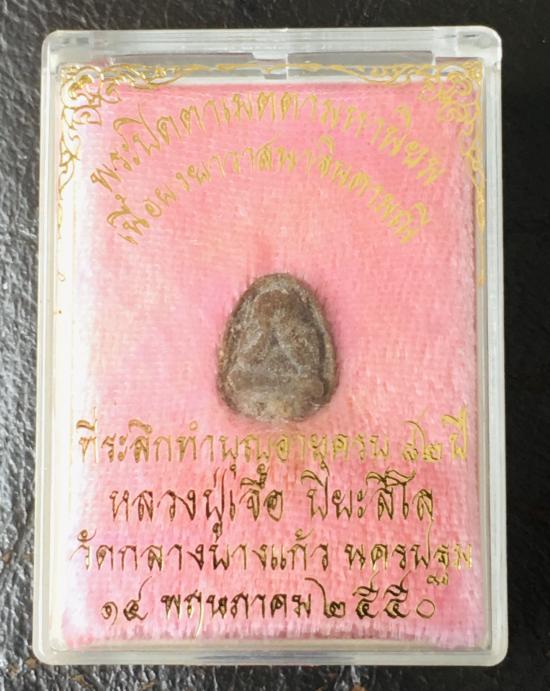 พระปิดตาเมตตามหานิยม
เนื้อผงยาวาสนาจินดามณี
ที่ระลึกทำบุญอายุครบ ๘๒ ปี
หลวงปู่เจือ ปิยะสีโล
วัดกลางบางแก้ว นครปฐม
๑๔ พฤษภาคม ๒๕๕๐